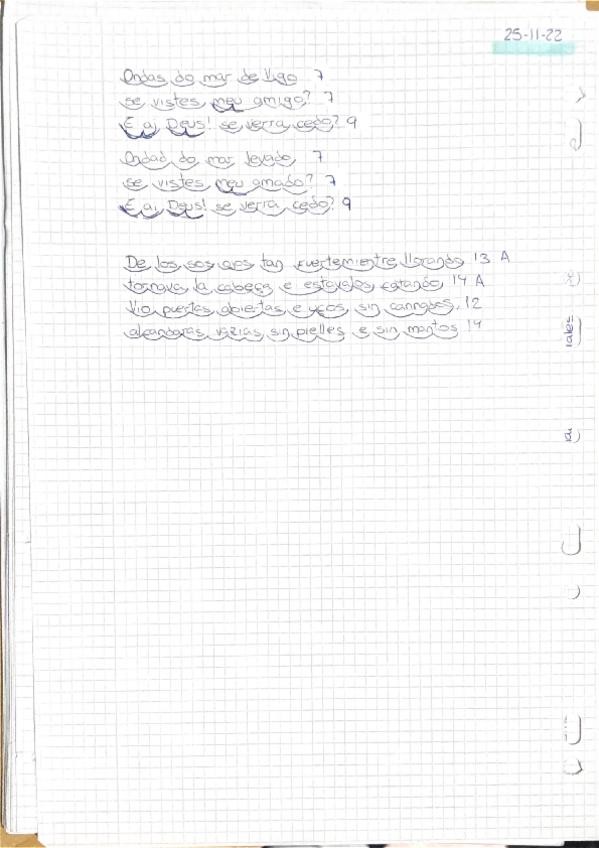 25-11-22
Ondas do mar de Vigo 7
se vistes meu amigo? 7
E ai Deus! se verra cedo? 9
Ondad do mar levado, 7
se vistes meu amado? 7
E ai Deus! se verra cedo? 9
De los sos ojos tan fuertemientre llorando 13 A
tornava la cabeça e estávalos catando, 14 A
Vio puertas abiertas e uços sin cannados, 12
alcandaras vazias, sin pielles e sin mantos 14